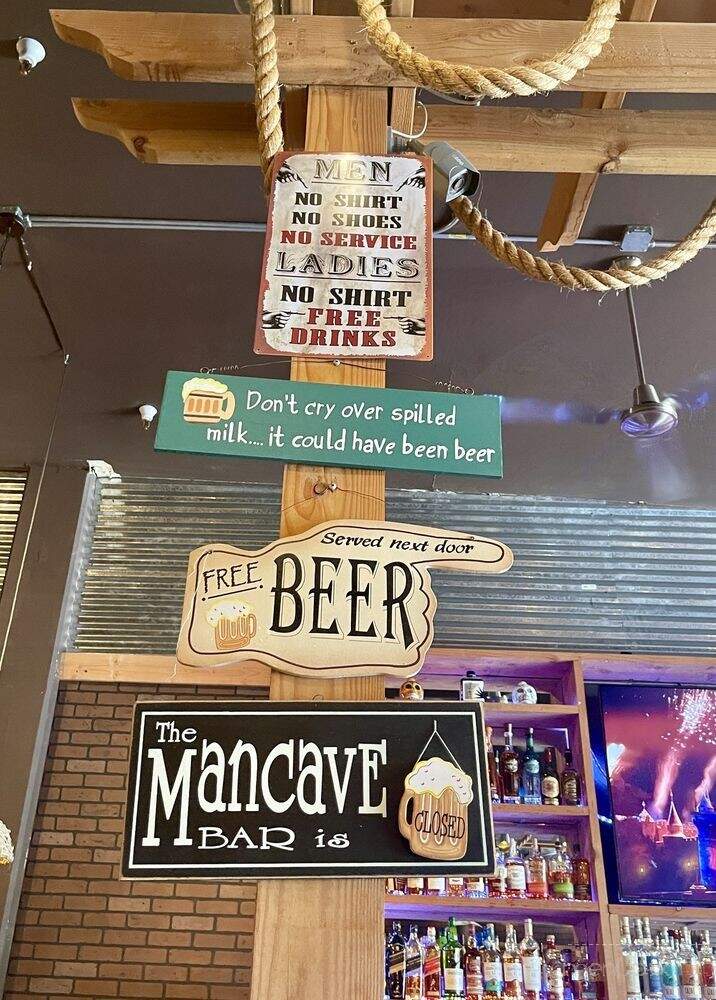 MEN
NO SHIRT
NO SHOES
NO SERVICE
LADIES
NO SHIRT
FREE
DRINKS
Don't cry over spilled
milk.... it could have been beer
Served next door
FREE
BEER
The
Mancave
BAR is
CLOSED